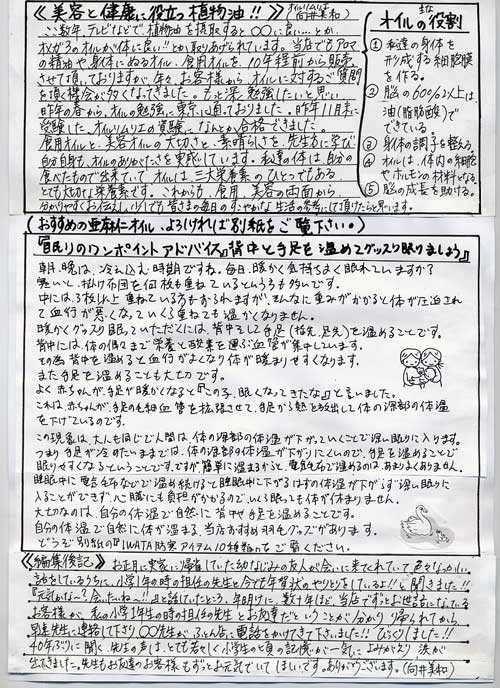 《美容と健康に役立つ植物油!!》 オイルソムリエ 向井美和)
ここ数年、テレビなどで、植物油を摂取すると〇〇に良い…とか、
オメガ3のオイルが体に良い!!とか、取りあげられています。当店でもアロマ
の精油や、身体にぬるオイル、食用オイルを、10年程前から販売
させて頂いておりますが、年々、お客様から、オイルに対するご質問
を頂く機会が多くなってきました。もっと深く勉強したいと思い
昨年の春から、オイルの勉強に東京に通っておりました。昨年11月末に
受験した、オイルソムリエの資格になんとか合格できました。
食用オイルと、美容オイルの大切さと、素晴らしさを、先生方に学び
自分自身も、オイルのありがたさを実感しています。私達の体は、自分の
食べたもので出来ていて、オイルは、三大栄養素のひとつでもある
とても大切な栄養素です。これからも、食用、美容の両面から、
分かりやすくお伝えし、少しでも皆さまの毎日のすこやかな生活の参考にして頂けたらと思います。
オイルの主な役割
① 私達の身体を
形成する細胞膜
を作る。
② 脳の60%以上は
油(脂肪酸)で
できている。
③ 身体の調子を整える。
④ オイルは、体内の細胞
やホルモンの材料となる。
⑤ 脳の成長を助ける。
(おすすめの亜麻仁オイル、よろしければ別紙をご覧下さい。)
『眠りのワンポイントアドバイス』『背中と手足を温めてグッスリ眠りましょう』
朝、晩は、冷え込む時期ですね。毎日、暖かく気持ちよく眠れていますか?
寒いと、掛け布団を何枚も重ねているという方も多いです。
中には、3枚以上重ねている方もおられますが、そんなに重みがかかると体が圧迫され
て血行が悪くなっていくら重ねても温かくなりません。
暖かくグッスリ眠っていただくには、背中そして手足(指先、足先)を温めることです。
背中には、体の隅々まで栄養と酸素を運ぶ血管が集中しています。
その為、背中を温めると血行がよくなり体が暖まりやすくなります。
また手足を温めることも大切です。
よく、赤ちゃんが、手足が暖かくなると『この子、眠くなってきたな』と言いました。
これは、赤ちゃんが、手足の毛細血管を拡張させて、手足から熱を放出して体の深部の体温
を下げているのです。
この現象は、大人も同じで人間は、体の深部の体温が下がっていくことで深い眠りに入ります。
つまり手足が冷めたいままでは、体の深部の体温が下がりにくいので、手足を温めることで
眠りやすくなるということです。ですが、簡単に温まるからと、電気毛布で温めるのは、あまりよくありません。
睡眠中に、電気毛布などで温め続けると、睡眠中に下がるはずの体温が下がらず深い眠りに
入ることができず、心臓にも負担がかかるので、いくら眠っても体が休まりません。
大切なのは、自分の体温で自然に背中や手足を温めることです。
自分の体温で自然に体が温まる、当店おすすめ羽毛グッズがあります。
どうぞ別紙の『IWATA防寒アイテム10種類』もご覧ください。
《編集後記》 お正月に実家に帰省していた幼なじみの友人が会いに来てくれていて色々なつかしい
話をしているうちに、小学1年の時の担任の先生と今でも年賀状のやりとりをしているよ!!と聞きました!!
『元気かな〜、会いたいね〜!!』と話していたところ、年明けに、数十年ほど、当店でずっとお世話になっている
お客様が、私の小学1年生の時の担任の先生とお友達だということが分かり、帰られてから
早速、先生に連絡して下さり、〇〇先生が、ふとん店に電話をかけてきて下さいました!!びっくりしました!!
40年ぶりに聞く、先生の声は、とても若々しく小学生の七頁の記憶が一気によみがえり涙が
出てきました。先生もお友達のお客様もずっとお元気でいてほしいです。ありがとうございます。(向井美和)